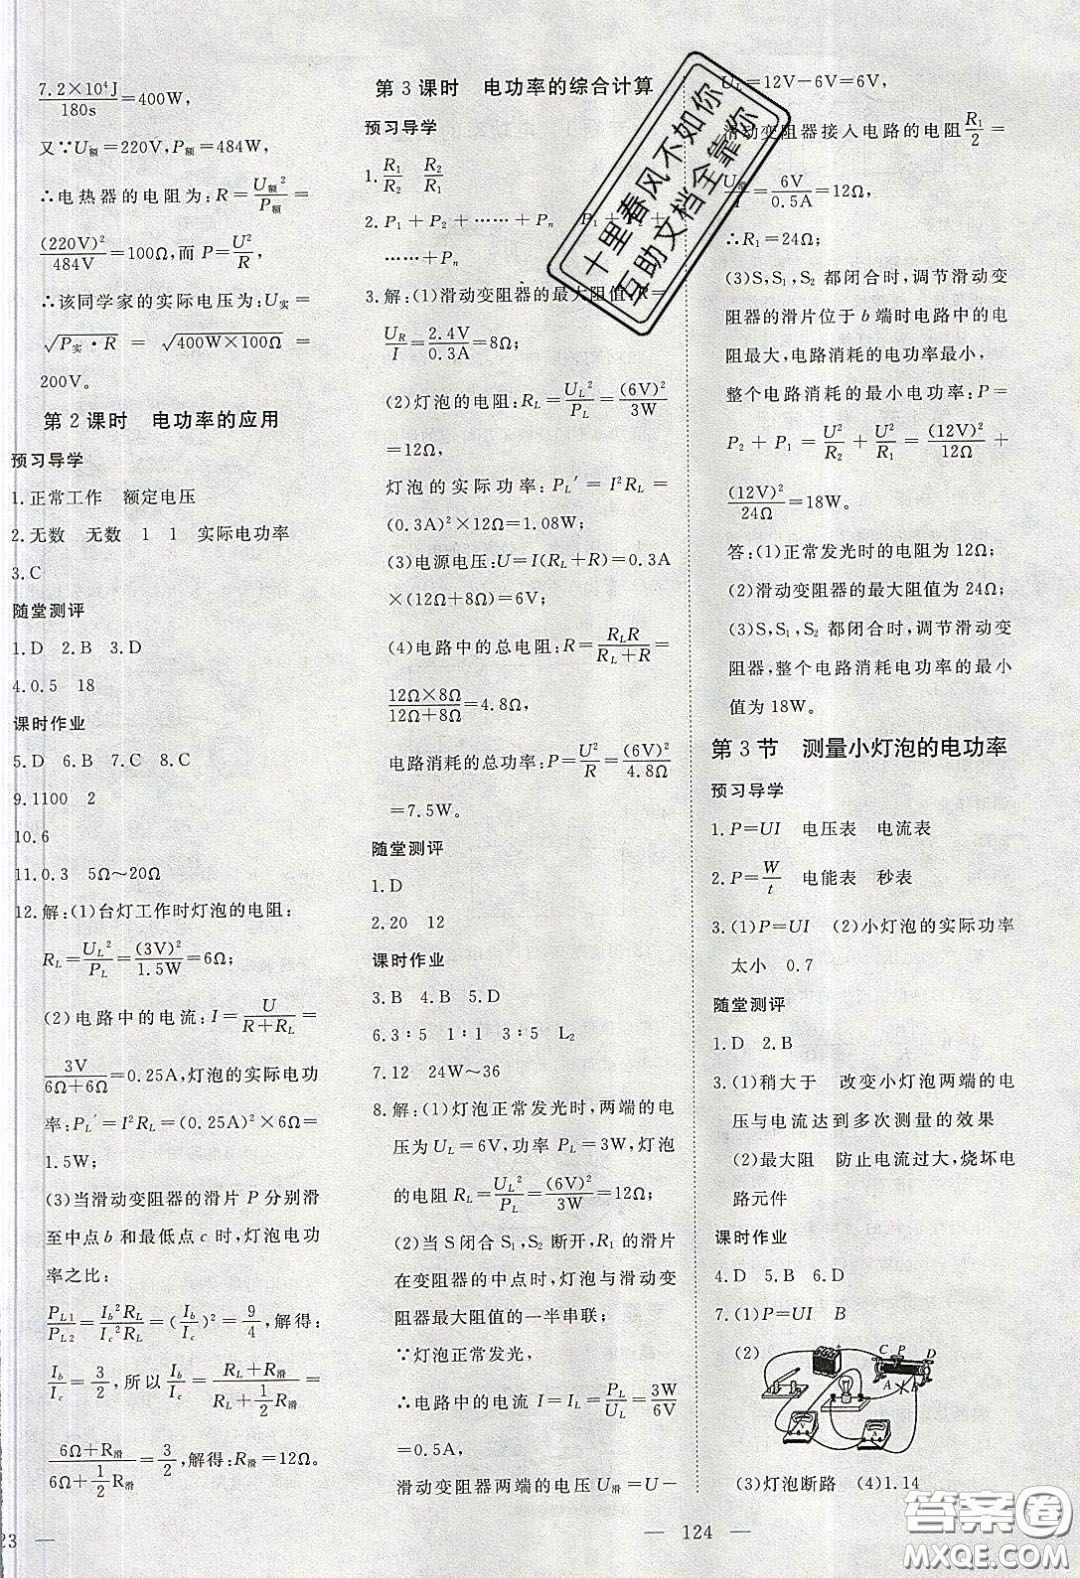 7.2×10⁴J/180s=400W,
又∵U额=220V,P额=484W,
∴电热器的电阻为:R=U额²/P额=
(220V)²/484V=100Ω,而P=U²/R,
∴该同学家的实际电压为:U实=
√(P实·R) = √(400W×100Ω) =
200V。
第2课时 电功率的应用
预习导学
1.正常工作 额定电压
2.无数 无数 1 1 实际电功率
3.C
随堂测评
1.D 2.B 3.D
4.0.5 18
课时作业
5.D 6.B 7.C 8.C
9.1100 2
10.6
11.0.3 5Ω~20Ω
12.解:(1)台灯工作时灯泡的电阻:
R_L=U_L²/P_L=(3V)²/1.5W=6Ω;
(2)电路中的电流:I=U/(R+R_L)=
3V/(6Ω+6Ω)=0.25A,灯泡的实际电功
率:P_L′=I²R_L=(0.25A)²×6Ω=
1.5W;
(3)当滑动变阻器的滑片P分别滑
至中点b和最低点c时,灯泡电功
率之比:
P_L1/P_L2=I_b²R_L/I_c²R_L=(I_b/I_c)²=9/4,解得:
I_b/I_c=3/2,所以I_b/I_c=(R_L+R滑)/(R_L+½R滑)=
(6Ω+R滑)/(6Ω+½R滑)=3/2,解得:R滑=12Ω。
23
第3课时 电功率的综合计算
预习导学
1.R₁/R₂ R₂/R₁
2.P₁+P₂+……+Pₙ P₁+P₂+
……+Pₙ
3.解:(1)滑动变阻器的最大阻值:R=
U_R/I=2.4V/0.3A=8Ω;
(2)灯泡的电阻:R_L=U_L²/P_L=(6V)²/3W
=12Ω,
灯泡的实际功率:P_L′=I²R_L=
(0.3A)²×12Ω=1.08W;
(3)电源电压:U=I(R_L+R)=0.3A
×(12Ω+8Ω)=6V;
(4)电路中的总电阻:R=R_LR/(R_L+R)=
12Ω×8Ω/(12Ω+8Ω)=4.8Ω,
电路消耗的总功率:P=U²/R=(6V)²/4.8Ω
=7.5W。
随堂测评
1.D
2.20 12
课时作业
3.B 4.B 5.D
6.3∶5 1∶1 3∶5 L₂
7.12 24W~36
8.解:(1)灯泡正常发光时,两端的电
压为U_L=6V,功率P_L=3W,灯泡
的电阻R_L=U_L²/P_L=(6V)²/3W=12Ω;
(2)当S闭合S₁,S₂断开,R₁的滑片
在变阻器的中点时,灯泡与滑动变
阻器最大阻值的一半串联;
∵灯泡正常发光,
∴电路中的电流I=I_L=P_L/U_L=3W/6V
=0.5A,
滑动变阻器两端的电压U滑=U-
124
U_L=12V-6V=6V,
滑动变阻器接入电路的电阻R₁/2=
U滑/I=6V/0.5A=12Ω,
∴R₁=24Ω;
(3)S,S₁,S₂都闭合时,调节滑动变
阻器的滑片位于b端时电路中的电
阻最大,电路消耗的电功率最小,
整个电路消耗的最小电功率:P=
P₂+P₁=U²/R₂+U²/R₁=(12V)²/12Ω+
(12V)²/24Ω=18W。
答:(1)正常发光时的电阻为12Ω;
(2)滑动变阻器的最大阻值为24Ω;
(3)S,S₁,S₂都闭合时,调节滑动变
阻器,整个电路消耗电功率的最小
值为18W。
第3节 测量小灯泡的电功率
预习导学
1.P=UI 电压表 电流表
2.P=W/t 电能表 秒表
3.(1)P=UI (2)小灯泡的实际功率
太小 0.7
随堂测评
1.D 2.B
3.(1)稍大于 改变小灯泡两端的电
压与电流达到多次测量的效果
(2)最大阻 防止电流过大,烧坏电
路元件
课时作业
4.D 5.B 6.D
7.(1)P=UI B
(2)
C P D
A B
(3)灯泡断路 (4)1.14
十里春风不如你
互助文档全靠你
答案圈
MXQE.COM